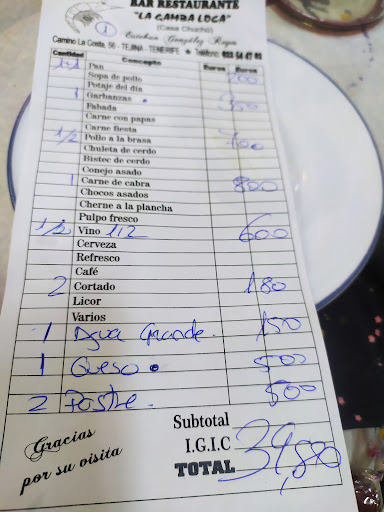 BAR RESTAURANTE
"LA GAMBA LOCA"
(Casa Chuchú)
Esteban González Rojas
Camino La Costa, 56 - TEJINA - TENERIFE * Teléfono:
Cantidad Concepto Euros Euros
1-1 Pan
Sopa de pollo
Potaje del día
1 Garbanzas 350
Fabada
Carne con papas
Carne fiesta
1/2 Pollo a la brasa 400
Chuleta de cerdo
Bistec de cerdo
Conejo asado
1 Carne de cabra 800
Chocos asados
Cherne a la plancha
Pulpo fresco
1/2 Vino 1/2 600
Cerveza
Refresco
Café
2 Cortado 180
Licor
Varios
1 Agua Grande. 150
1 Queso. 500
2 Postre. 500
Gracias
por su visita
Subtotal
I.G.I.C
TOTAL 39,80